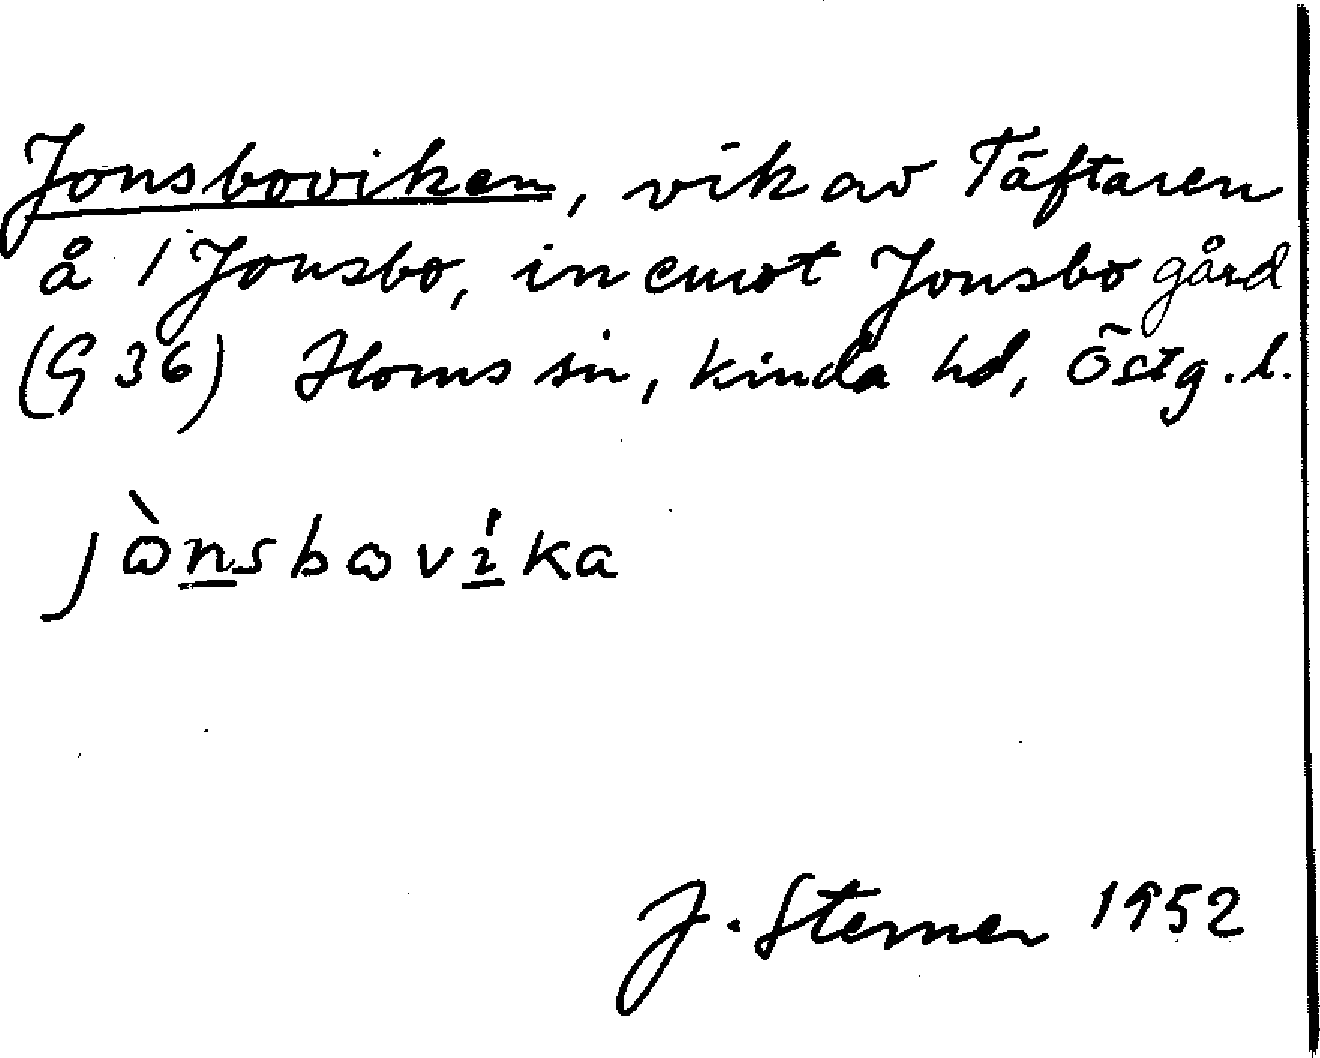 Jonsboviken, vik av Täftaren
å 1 Jonsbo, in emot Jonsbo gård
(G 36) Horns sn, Kinda hd, Östg. l.
jὼnsbωví̱ka
J. Sterner 1952